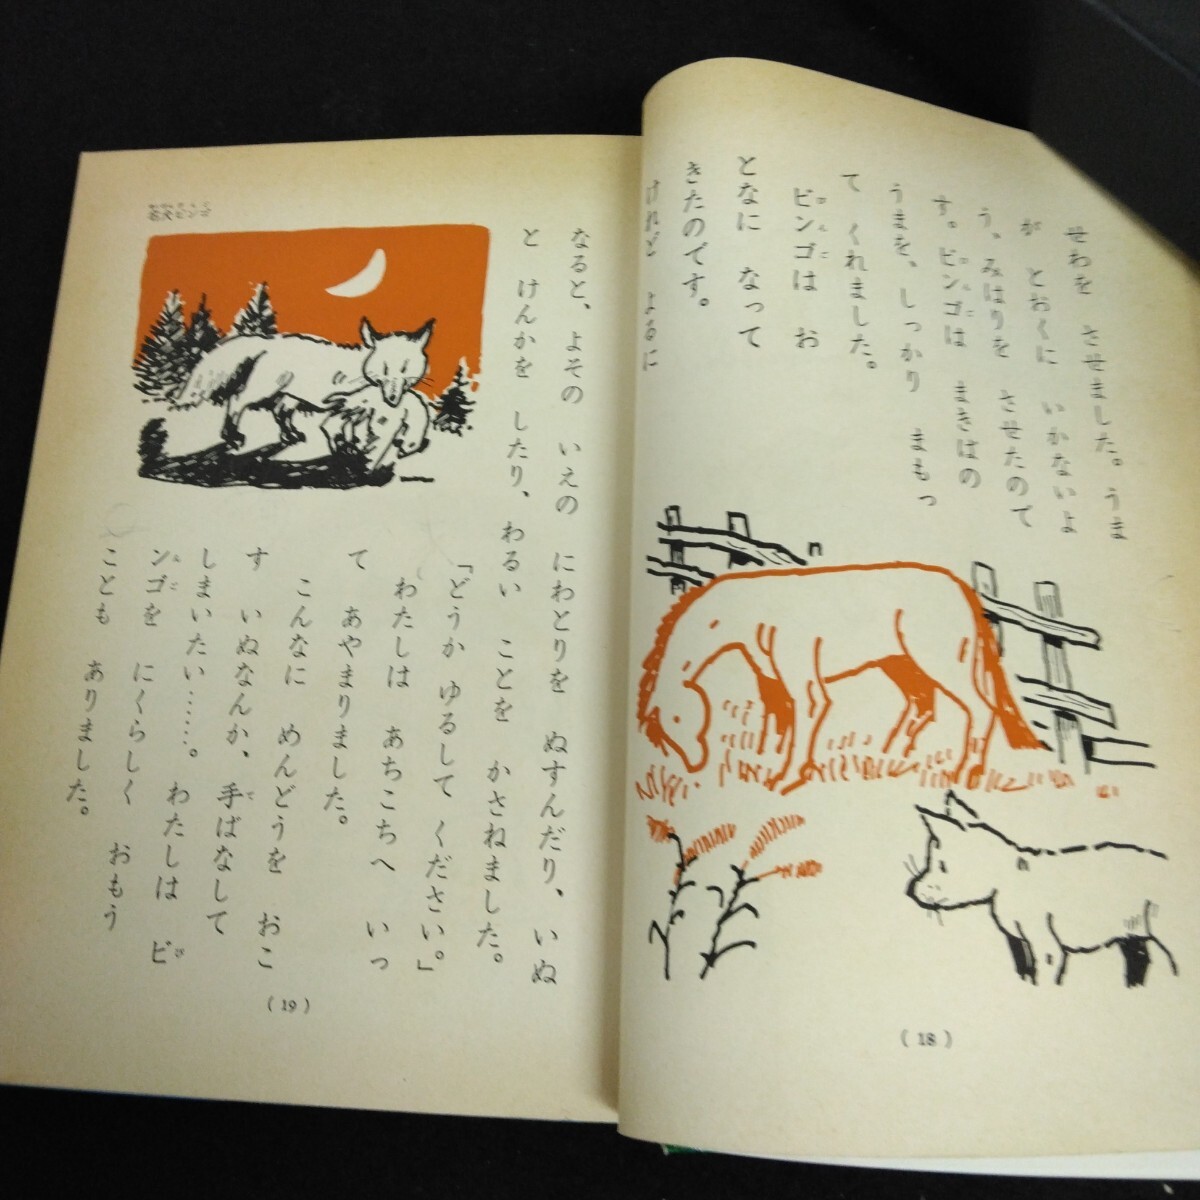 せわを させました。うま
が とおくに いかないよ
う、みはりを させたので
す。ビンゴは まきばの
うまを、しっかり まもっ
て くれました。
ビンゴは お
となに なって
きたのです。
けれど よるに
(18)
名犬ビンゴ
なると、よその いえの にわとりを ぬすんだり、いぬ
と けんかを したり、わるい ことを かさねました。
「どうか ゆるして ください。」
わたしは あちこちへ いっ
て あやまりました。
こんなに めんどうを おこ
す いぬなんか、手ばなして
しまいたい……。わたしは ビ
ンゴを にくらしく おもう
ことも ありました。
(19)